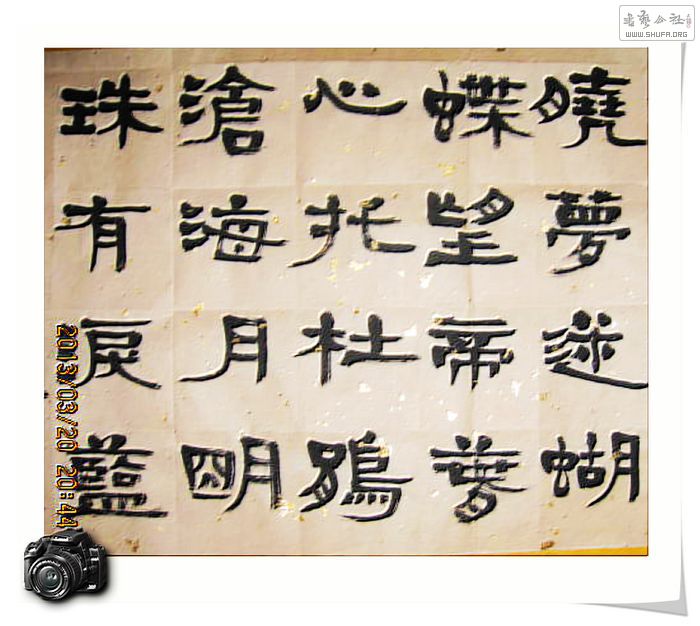 曉夢迷蝴
蝶望帝春
心托杜鵑
滄海月明
珠有淚藍
2013/03/20 20:44
WWW.SHUFA.ORG